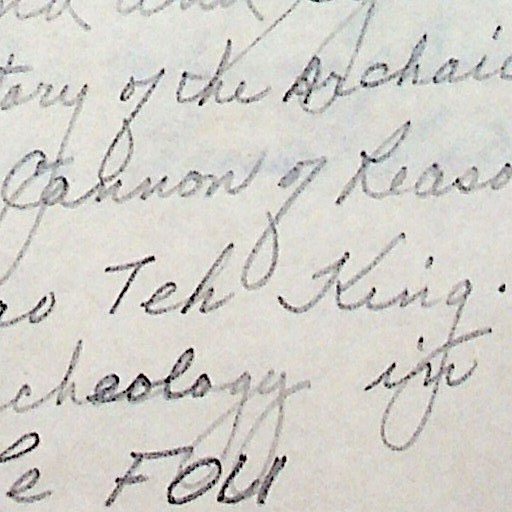 tory of the Archaic
Cannon of Reaso
ao Teh King.
cheology in
le FOU